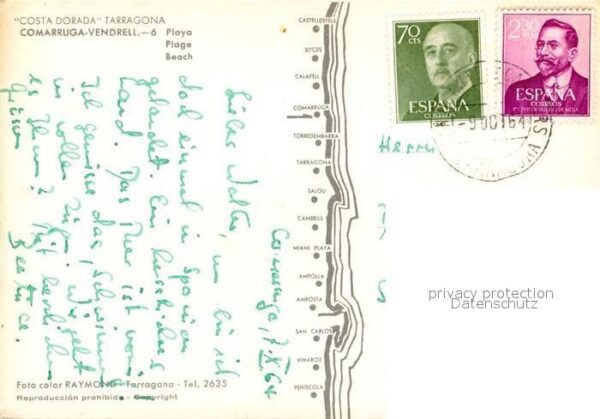 "COSTA DORADA" TARRAGONA
COMARRUGA-VENDRELL.—6 Playa
Plage
Beach
CASTELLDEFELS
SITGES
CALAFELL
COMARRUGA
TORREDEMBARRA
TARRAGONA
SALOU
CAMBRILS
MIAMI PLAYA
AMPOLLA
AMPOSTA
SAN CARLOS
VINAROZ
PEÑISCOLA
70
CTS
ESPAÑA
CORREOS
2'30
PTAS
ESPAÑA
CORREOS
-9 OCT 64
Herrn
privacy protection
Datenschutz
Comarruga, 7.X.64
Lieber Walter, nun bin ich
doch einmal in Spanien
gelandet. Ein herrliches
Land. Das Meer ist warm.
Ich geniesse das Schwimmen
in vollen Zügen. Wie geht
es Ihnen? Mit herzlichen
Grüssen
Beatrice.
Foto color RAYMOND - Tarragona - Tel. 2635
Reproducción prohibida - Copyright